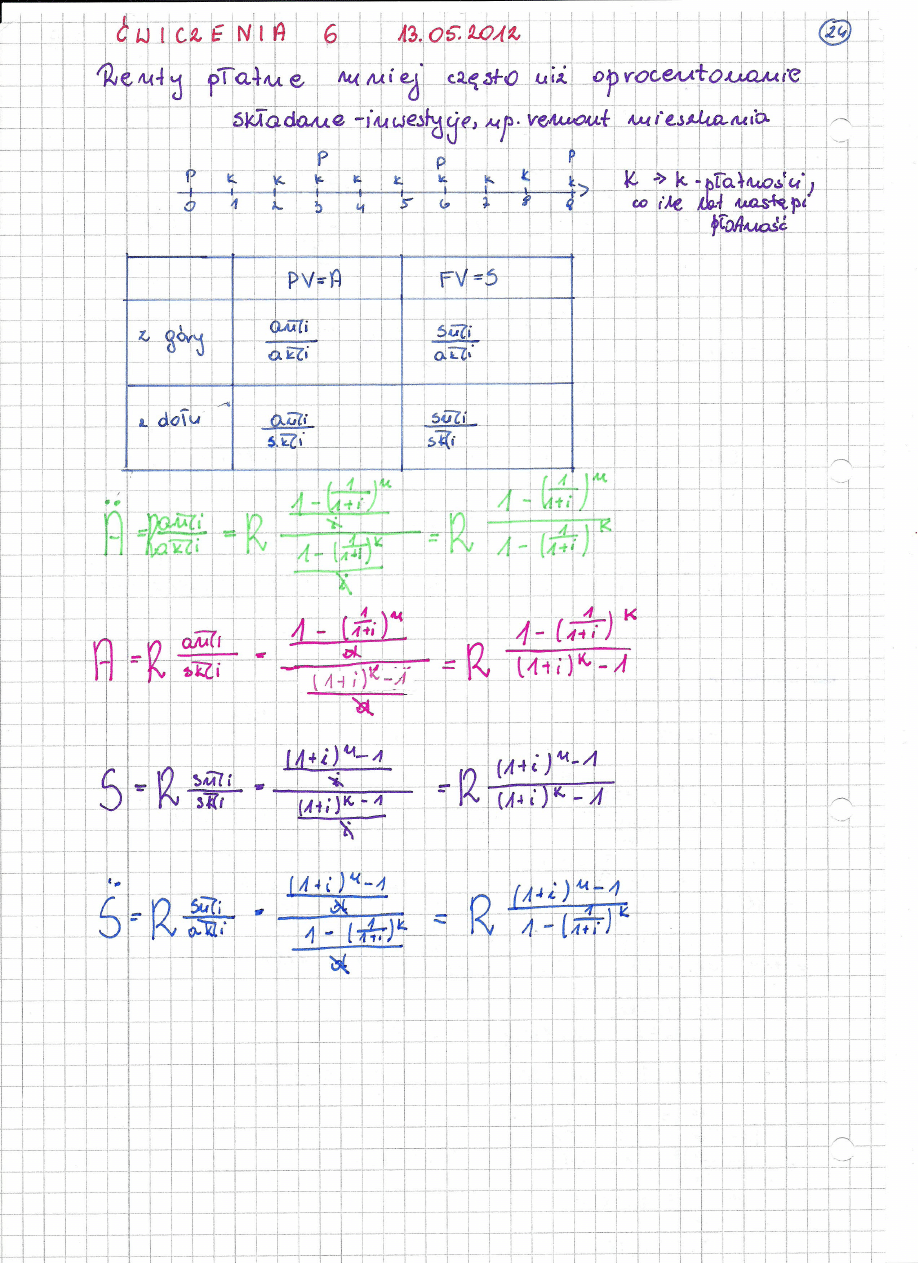 ĆWICZENIA 6 13.05.2012
24
Renty płatne mniej często niż oprocentowanie
składane - inwestycje, np. remont mieszkania
P P P
P K K K K K K K K K
0 1 2 3 4 5 6 7 8 9
K → k-płatności,
co ile lat nastąpi
płatność
PV=A FV=S
z góry a n̅|i / a k̅|i s n̅|i / a k̅|i
z dołu a n̅|i / s k̅|i s n̅|i / s k̅|i
Ä = R a n̅|i / a k̅|i = R ((1-(1/(1+i))^n)/i) / ((1-(1/(1+i))^k)/i) = R (1-(1/(1+i))^n) / (1-(1/(1+i))^k)
A = R a n̅|i / s k̅|i = ((1-(1/(1+i))^n)/i) / (((1+i)^k-1)/i) = R (1-(1/(1+i))^k) / ((1+i)^k-1)
S = R s n̅|i / s k̅|i = (((1+i)^n-1)/i) / (((1+i)^k-1)/i) = R ((1+i)^n-1) / ((1+i)^k-1)
S̈ = R s n̅|i / a k̅|i = (((1+i)^n-1)/i) / ((1-(1/(1+i))^k)/i) = R ((1+i)^n-1) / (1-(1/(1+i))^k)